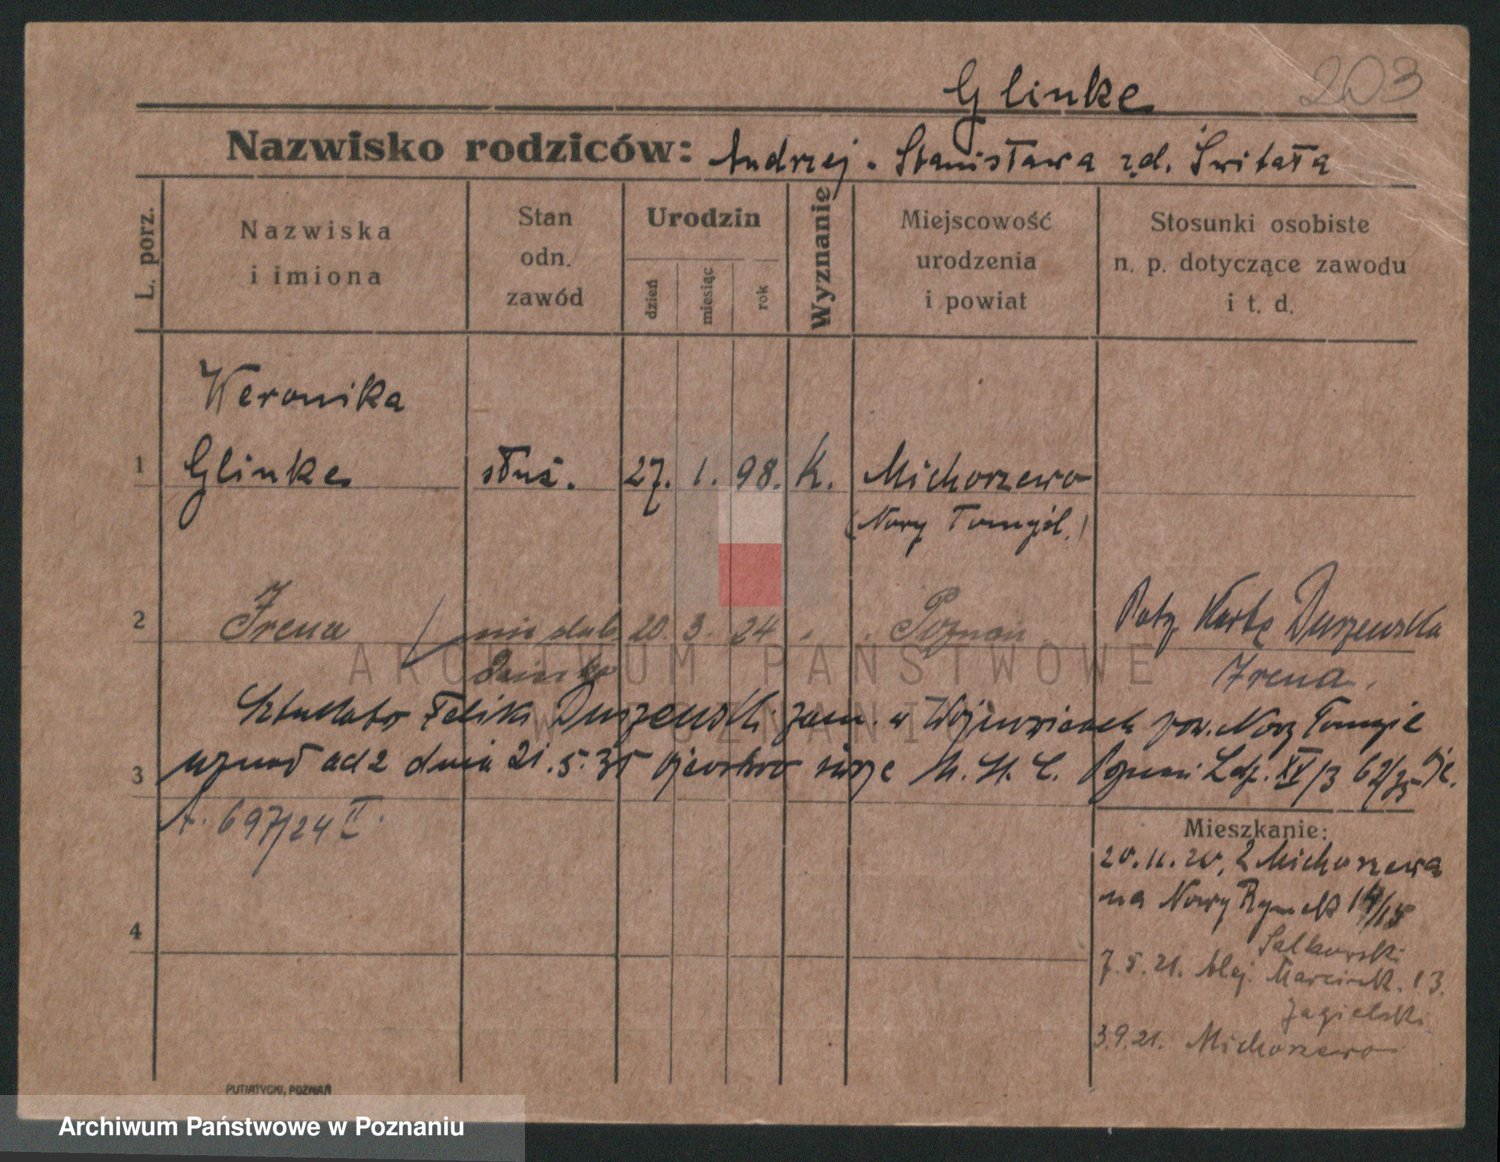 203
Glinke
Nazwisko rodziców: Andrzej - Stanisława z d. Świtała
L. porz.
Nazwiska
i imiona
Stan
odn.
zawód
Urodzin
dzień
miesiąc
rok
Wyznanie
Miejscowość
urodzenia
i powiat
Stosunki osobiste
n. p. dotyczące zawodu
i t. d.
Weronika
1 Glinke służ. 27. 1. 98. K. Michorzewo
(Nowy Tomyśl.)
2 Irena nieślub 20. 3. 24 Poznań Patrz Kartę Duszewska
dziecko Irena.
Feliks Duszewski zam. w pow. Nowy Tomyśl
3 uznał ad 2 dnia 21.5.35 ojcostwo 62/35
A. 697/24 I.
ARCHIWUM PAŃSTWOWE
W POZNANIU
Mieszkanie:
20.11.20, z Michorzewa
na Nowy Rynek 14/15
4
Salkowski
7.5.21. Alej. Marcink. 13.
Jagielski
3.9.21. Michorzewo
PUTIATYCKI, POZNAŃ
Archiwum Państwowe w Poznaniu